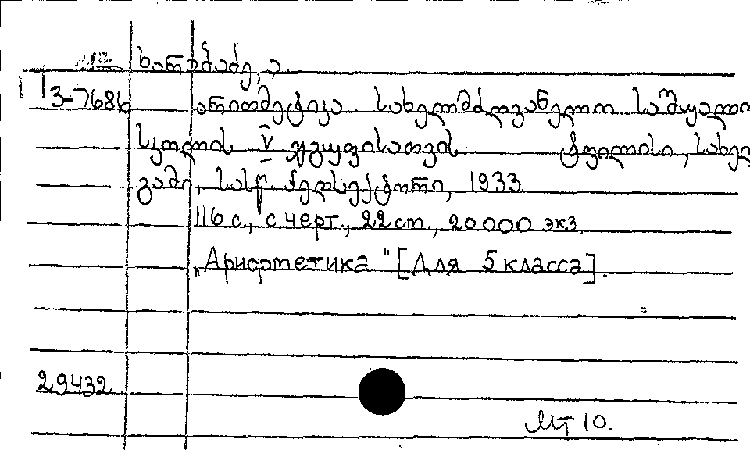 13-7686
არითმეტიკა. სახელმძღვანელო საშუალო
სკოლის V ჯგუფისათვის ტფილისი, სახელ
გამი, სასწ. პედსექტორი, 1933
116 с., с черт., 22 cm., 20000 экз.
„Арифметика" [Для 5 класса].
29432
МТ 10.